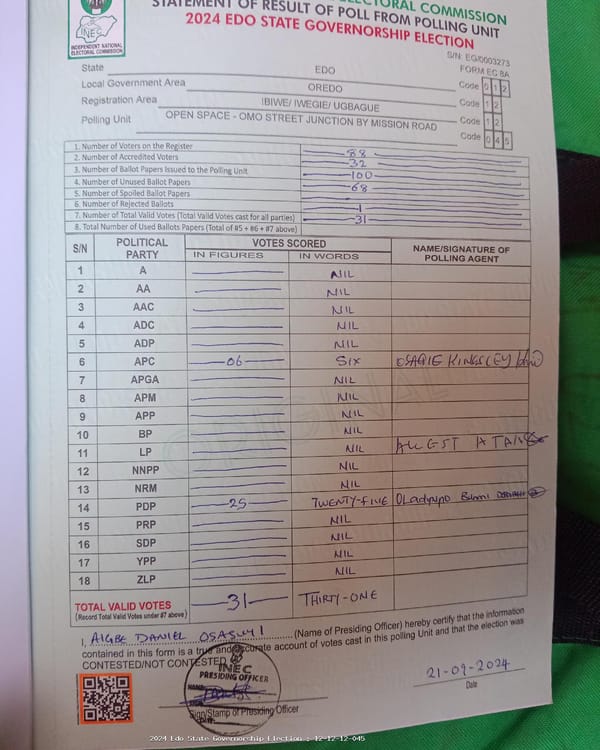 ELECTORAL COMMISSION
STATEMENT OF RESULT OF POLL FROM POLLING UNIT
2024 EDO STATE GOVERNORSHIP ELECTION
INEC
INDEPENDENT NATIONAL
ELECTORAL COMMISSION
S/N: EG/0003273
FORM EC 8A
State EDO
Local Government Area OREDO Code 0 1 2
Registration Area IBIWE/ IWEGIE/ UGBAGUE Code 1 2
Polling Unit OPEN SPACE - OMO STREET JUNCTION BY MISSION ROAD Code 1 2
Code 0 4 5
1. Number of Voters on the Register 88
2. Number of Accredited Voters 32
3. Number of Ballot Papers Issued to the Polling Unit 100
4. Number of Unused Ballot Papers 68
5. Number of Spoiled Ballot Papers
6. Number of Rejected Ballots 1
7. Number of Total Valid Votes (Total Valid Votes cast for all parties) 31
8. Total Number of Used Ballots Papers (Total of #5 + #6 + #7 above)
S/N POLITICAL PARTY VOTES SCORED NAME/SIGNATURE OF POLLING AGENT
IN FIGURES IN WORDS
1 A NIL
2 AA NIL
3 AAC NIL
4 ADC NIL
5 ADP NIL
6 APC 06 SIX OSAGIE KINGSLEY
7 APGA NIL
8 APM NIL
9 APP NIL
10 BP NIL
11 LP NIL
12 NNPP NIL
13 NRM NIL
14 PDP 25 TWENTY-FIVE Oladypo Bunmi
15 PRP NIL
16 SDP NIL
17 YPP NIL
18 ZLP NIL
TOTAL VALID VOTES 31 THIRTY-ONE
(Record Total Valid Votes under #7 above)
ORIGINAL
I, AIGBE DANIEL OSASUYI (Name of Presiding Officer) hereby certify that the information
contained in this form is a true and accurate account of votes cast in this polling Unit and that the election was
CONTESTED/NOT CONTESTED
INEC
PRESIDING OFFICER
Sign/Stamp of Presiding Officer
21-09-2024
Date
2024 Edo State Governorship Election : 12-12-12-045